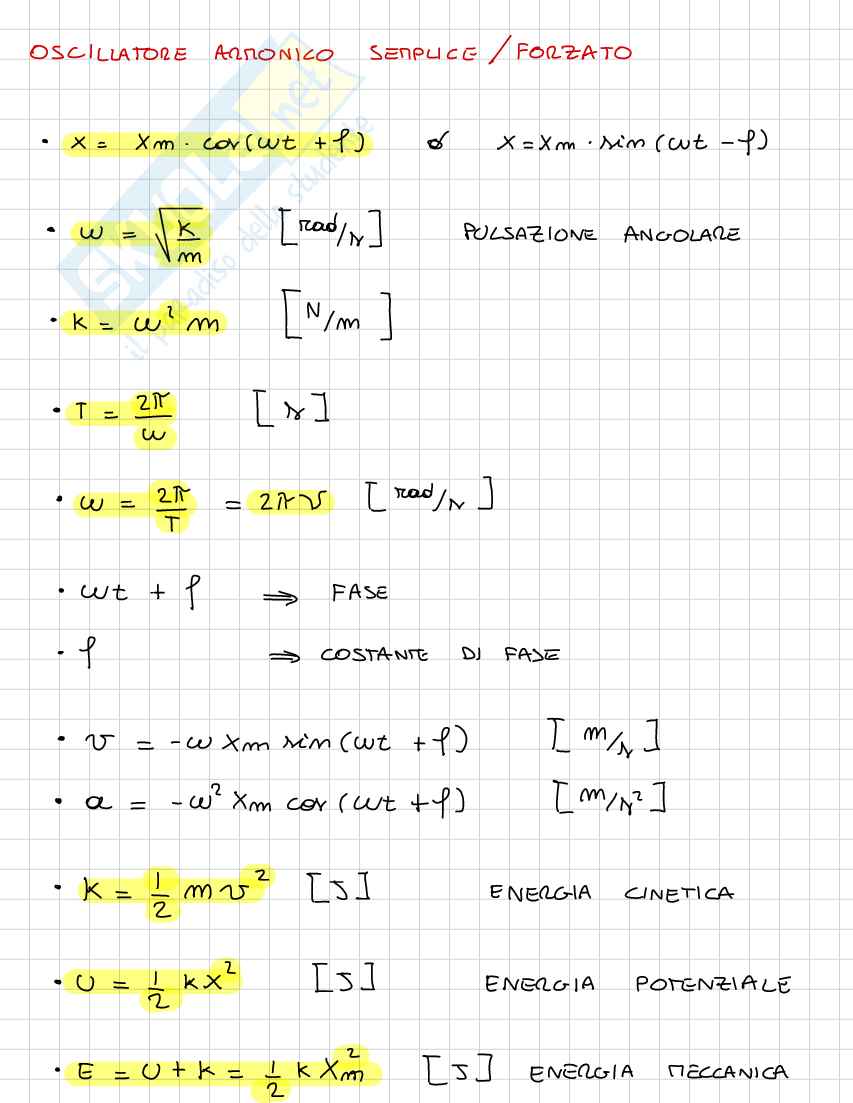 OSCILLATORE ARMONICO SEMPLICE / FORZATO
• x = xm · cos(ωt + φ) o x = xm · sin(ωt - φ)
• ω = √(k/m) [rad/s] PULSAZIONE ANGOLARE
• k = ω² m [N/m]
• T = 2π/ω [s]
• ω = 2π/T = 2πν [rad/s]
• ωt + φ ⇒ FASE
• φ ⇒ COSTANTE DI FASE
• v = -ω xm sin(ωt + φ) [m/s]
• a = -ω² xm cos(ωt + φ) [m/s²]
• K = 1/2 m v² [J] ENERGIA CINETICA
• U = 1/2 k x² [J] ENERGIA POTENZIALE
• E = U + K = 1/2 k xm² [J] ENERGIA MECCANICA
SKUOLA.net
il paradiso dello studente